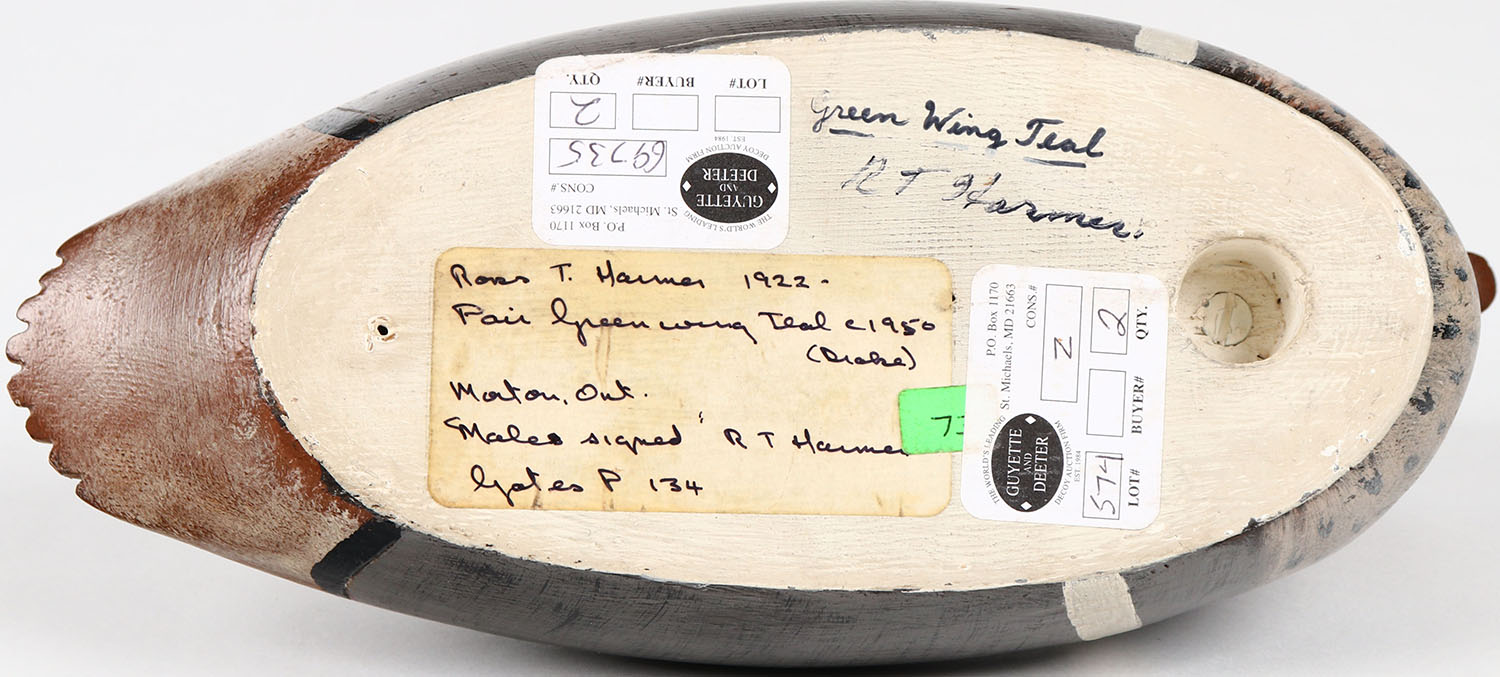 Green Wing Teal
R T Harmer.
P.O. Box 1170
St. Michaels, MD 21663
CONS.#
69735
THE WORLD'S LEADING
GUYETTE
AND
DEETER
DECOY AUCTION FIRM
EST. 1984
LOT# BUYER# QTY.
2
Ross T. Harmer 1922 -
Pair Greenwing Teal c1950
(Drake)
Morton, Ont.
"Males signed" R T Harmer
Gates P 134
73
P.O. Box 1170
St. Michaels, MD 21663
CONS.#
Z
THE WORLD'S LEADING
GUYETTE
AND
DEETER
DECOY AUCTION FIRM
EST. 1984
574 2
LOT# BUYER# QTY.